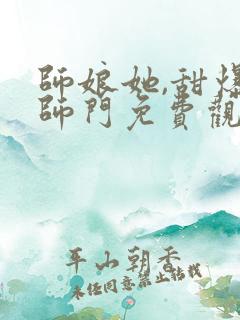 師娘她,甜爆
師門免費觀
平山朝香
未经同意禁止转载